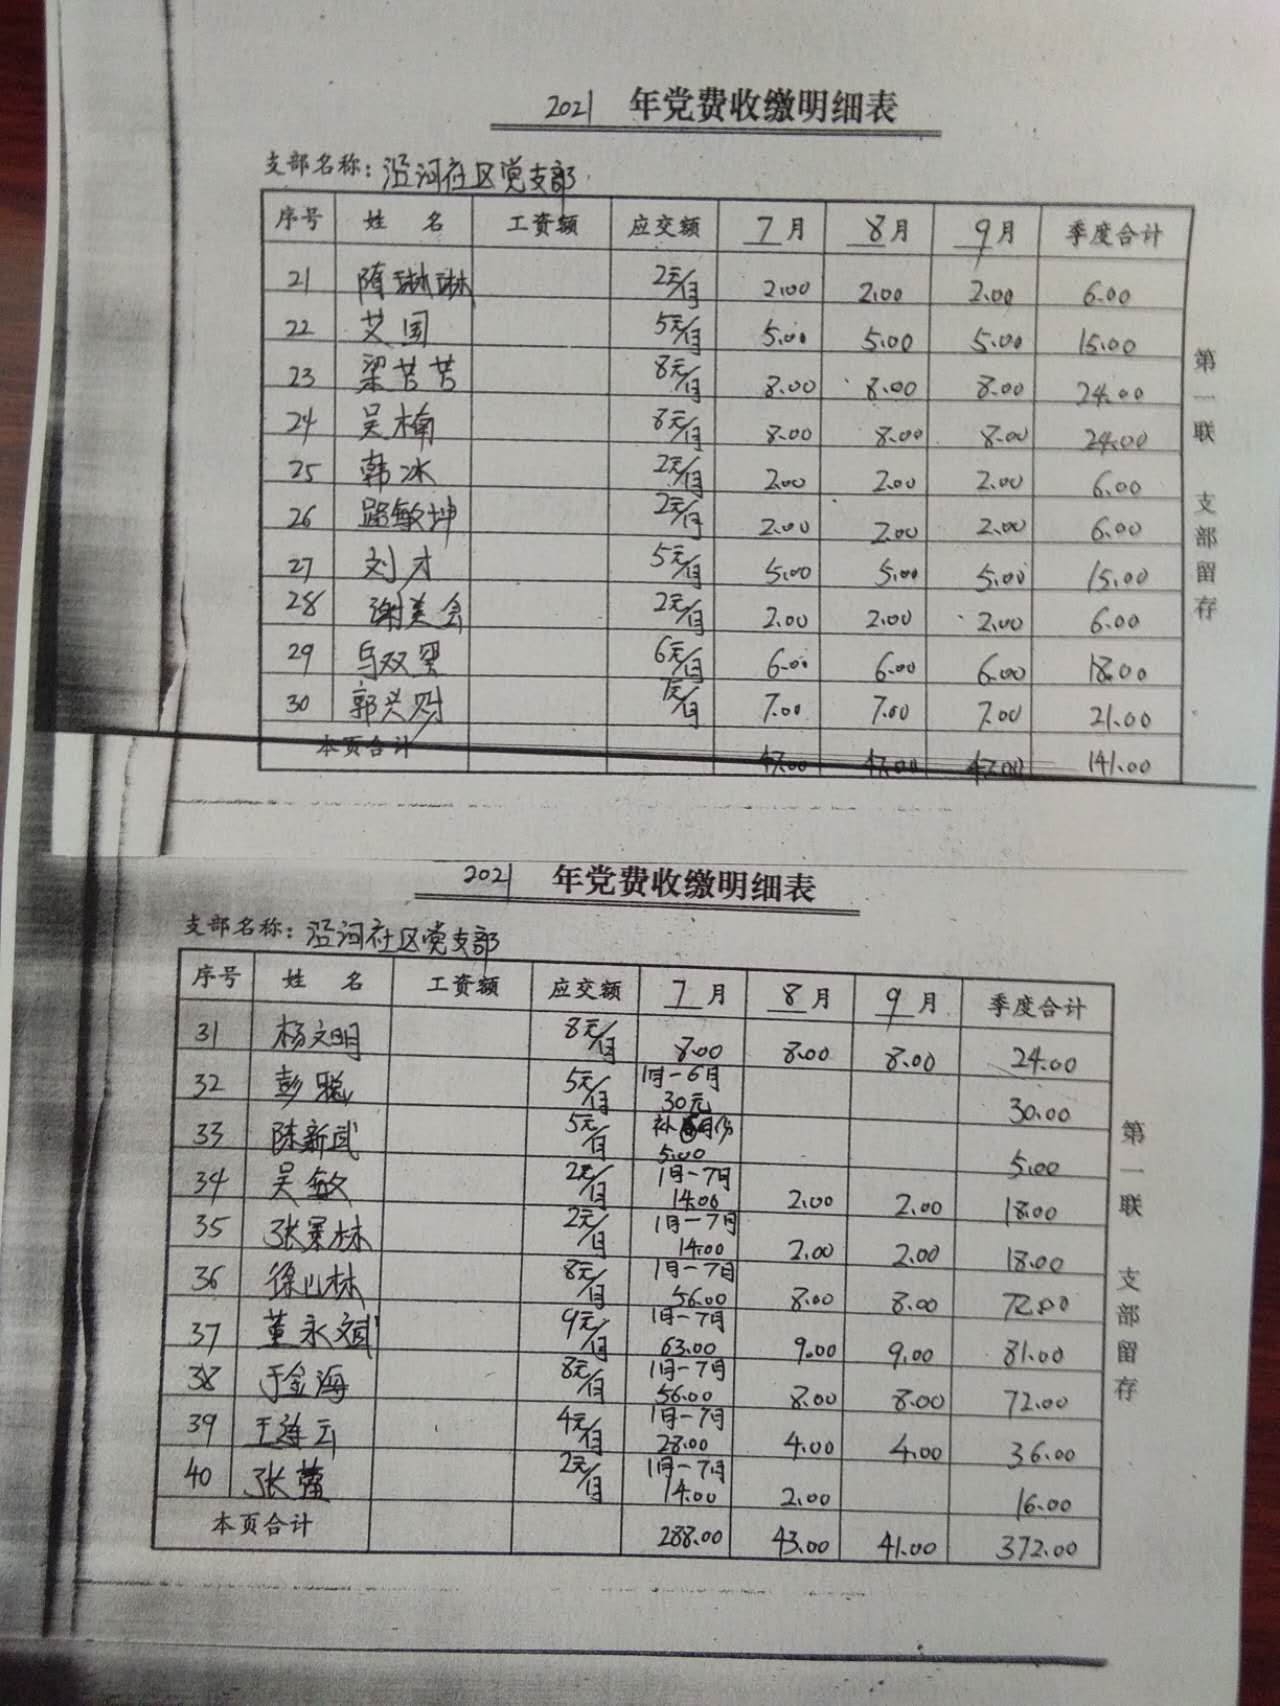 2021 年党费收缴明细表
支部名称：沿河社区党支部
序号 姓 名 工资额 应交额 7月 8月 9月 季度合计
21 隋琳琳 2元/月 2.00 2.00 2.00 6.00
22 艾国 5元/月 5.00 5.00 5.00 15.00
23 梁苦苦 8元/月 8.00 8.00 8.00 24.00
24 吴楠 8元/月 8.00 8.00 8.00 24.00
25 韩冰 2元/月 2.00 2.00 2.00 6.00
26 路敏坤 2元/月 2.00 2.00 2.00 6.00
27 刘才 5元/月 5.00 5.00 5.00 15.00
28 谢美 2元/月 2.00 2.00 2.00 6.00
29 双 6元/月 6.00 6.00 6.00 18.00
30 郭兴财 7元/月 7.00 7.00 7.00 21.00
本页合计 47.00 47.00 47.00 141.00
第一联 支部留存
2021 年党费收缴明细表
支部名称：沿河社区党支部
序号 姓 名 工资额 应交额 7月 8月 9月 季度合计
31 杨文明 8元/月 8.00 8.00 8.00 24.00
32 彭聪 5元/月 1月-6月 30元 30.00
33 陈新武 5元/月 补 月份 5.00 5.00
34 吴敏 2元/月 1月-7月 14.00 2.00 2.00 18.00
35 张 林 2元/月 1月-7月 14.00 2.00 2.00 18.00
36 徐山林 8元/月 1月-7月 56.00 8.00 8.00 72.00
37 董永斌 9元/月 1月-7月 63.00 9.00 9.00 81.00
38 于金海 8元/月 1月-7月 56.00 8.00 8.00 72.00
39 王连云 4元/月 1月-7月 28.00 4.00 4.00 36.00
40 张蕾 2元/月 1月-7月 14.00 2.00 16.00
本页合计 288.00 43.00 41.00 372.00
第一联 支部留存